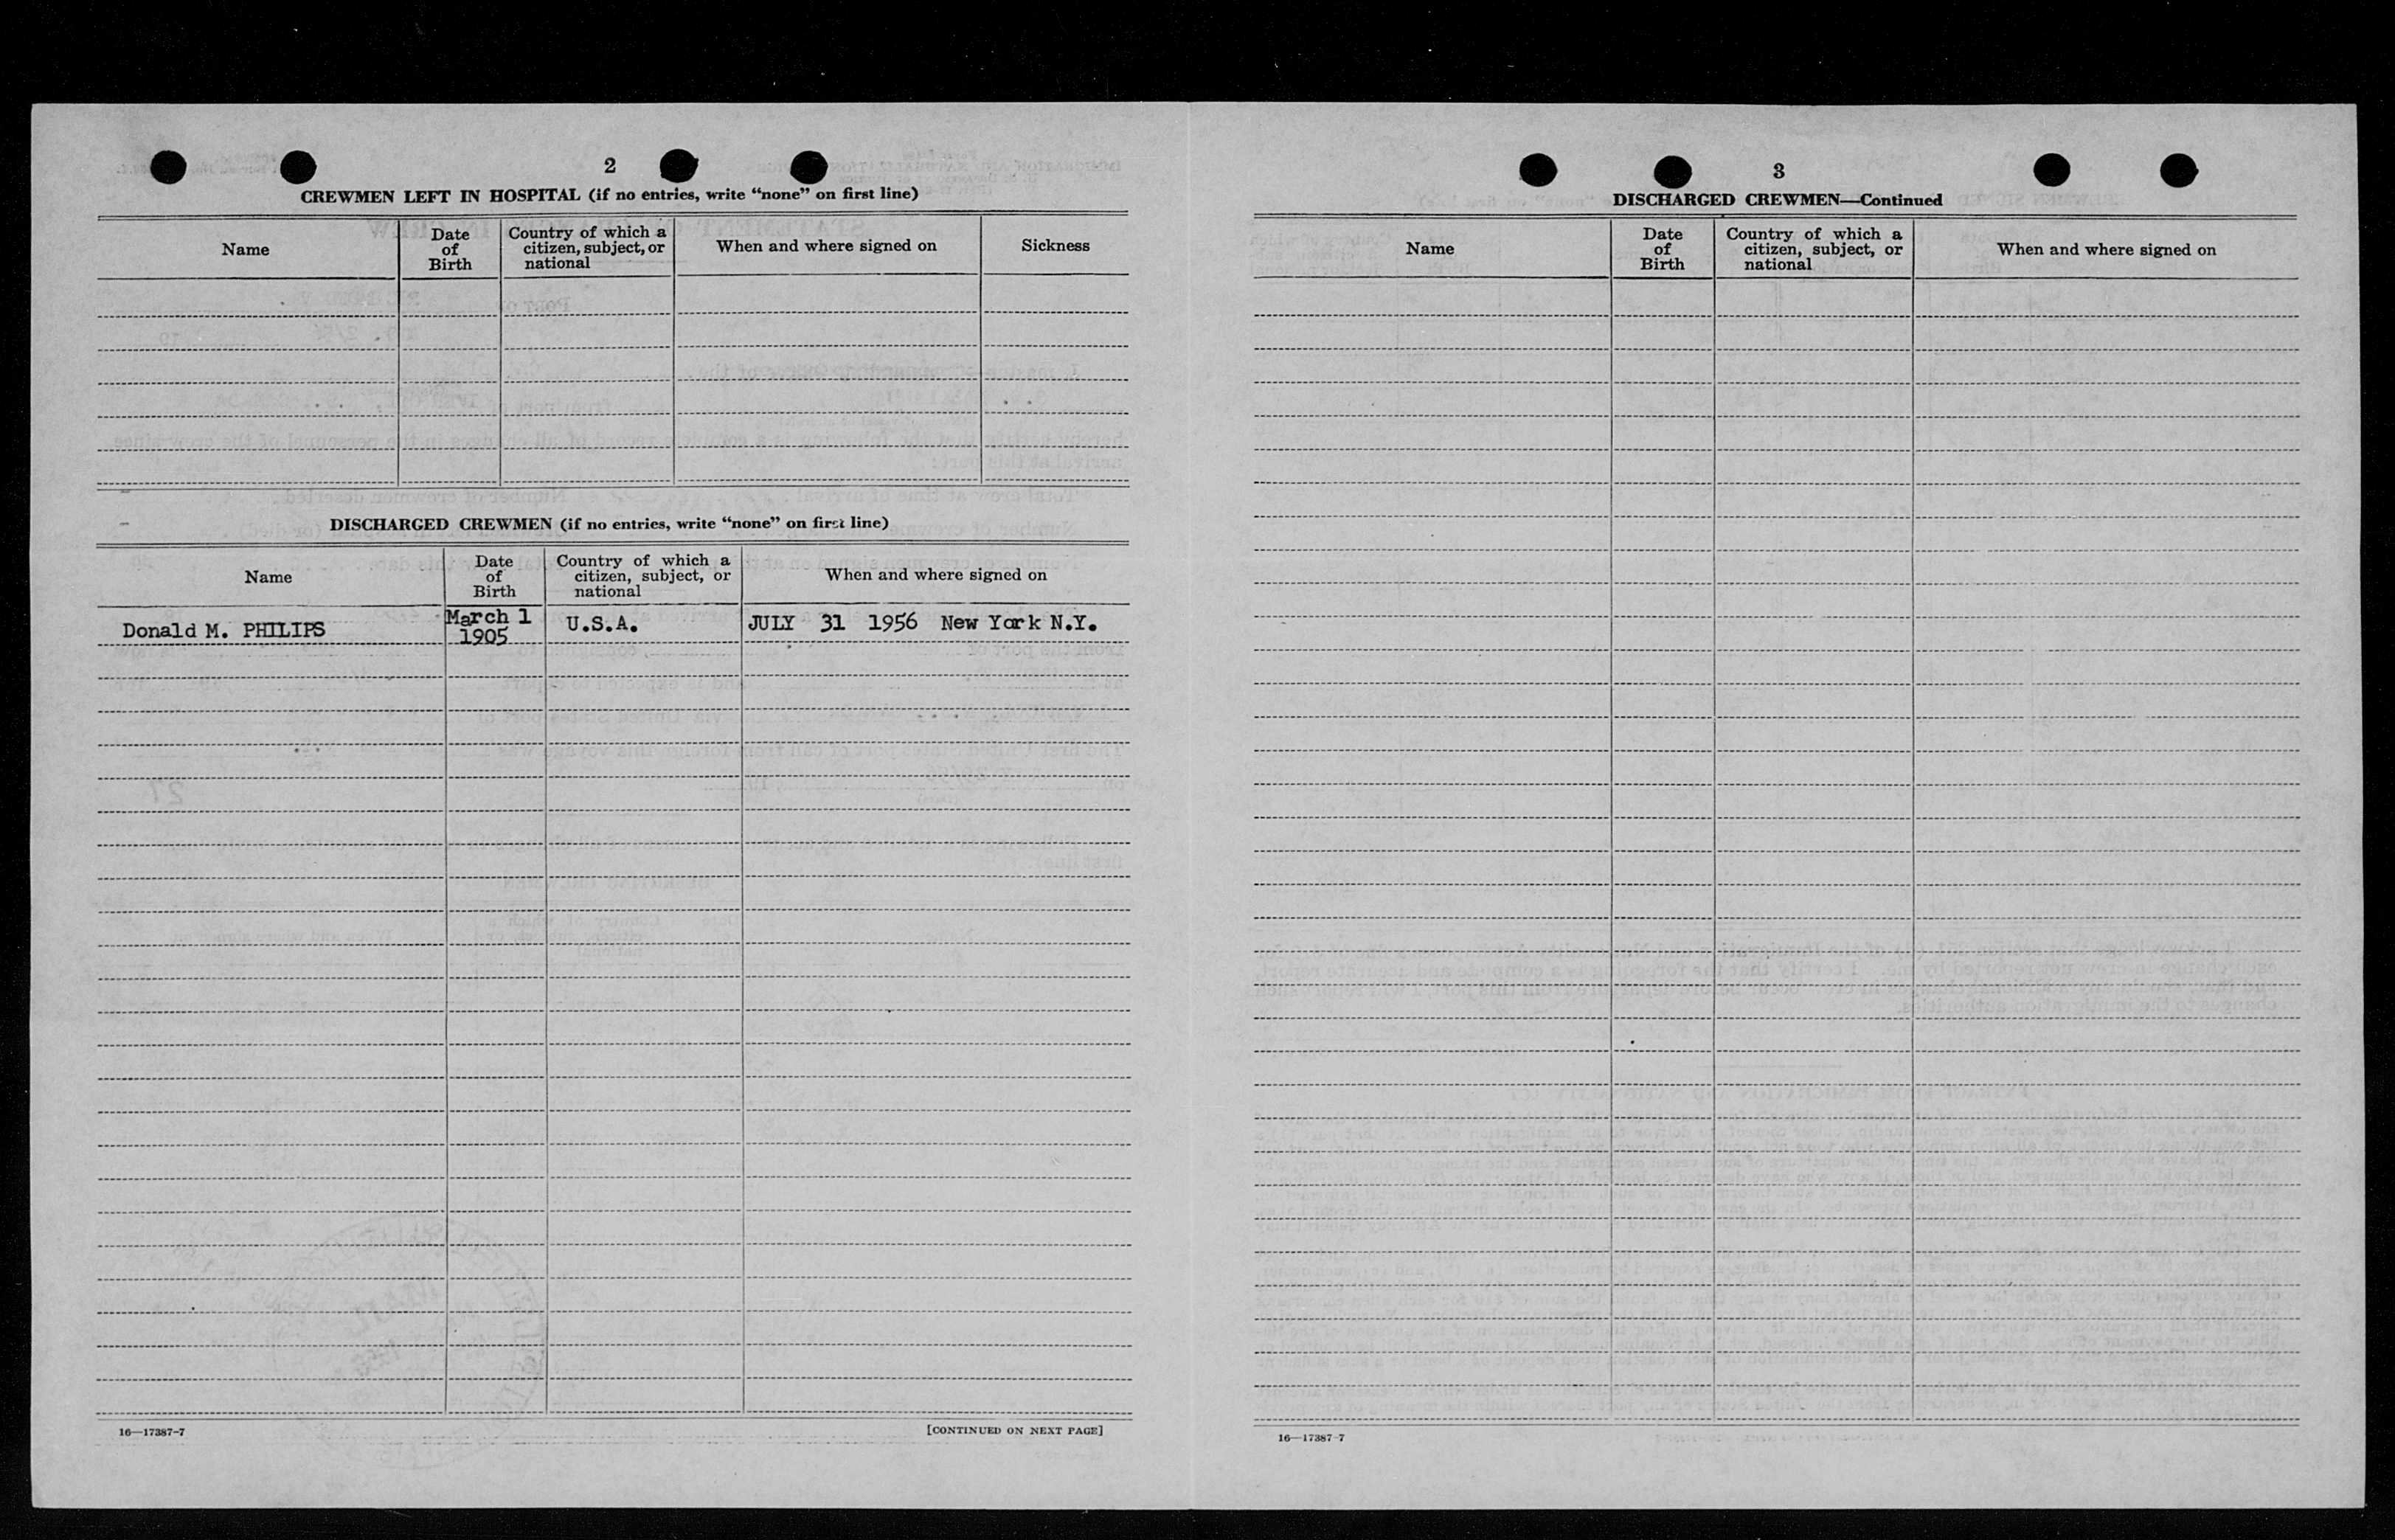 2
CREWMEN LEFT IN HOSPITAL (if no entries, write “none” on first line)
Name
Date of Birth
Country of which a citizen, subject, or national
When and where signed on
Sickness
DISCHARGED CREWMEN (if no entries, write “none” on first line)
Name
Date of Birth
Country of which a citizen, subject, or national
When and where signed on
Donald M. PHILIPS
March 1
1905
U.S.A.
JULY 31 1956 New York N.Y.
16—17387-7
[CONTINUED ON NEXT PAGE]
3
DISCHARGED CREWMEN—Continued
Name
Date of Birth
Country of which a citizen, subject, or national
When and where signed on
16—17387-7